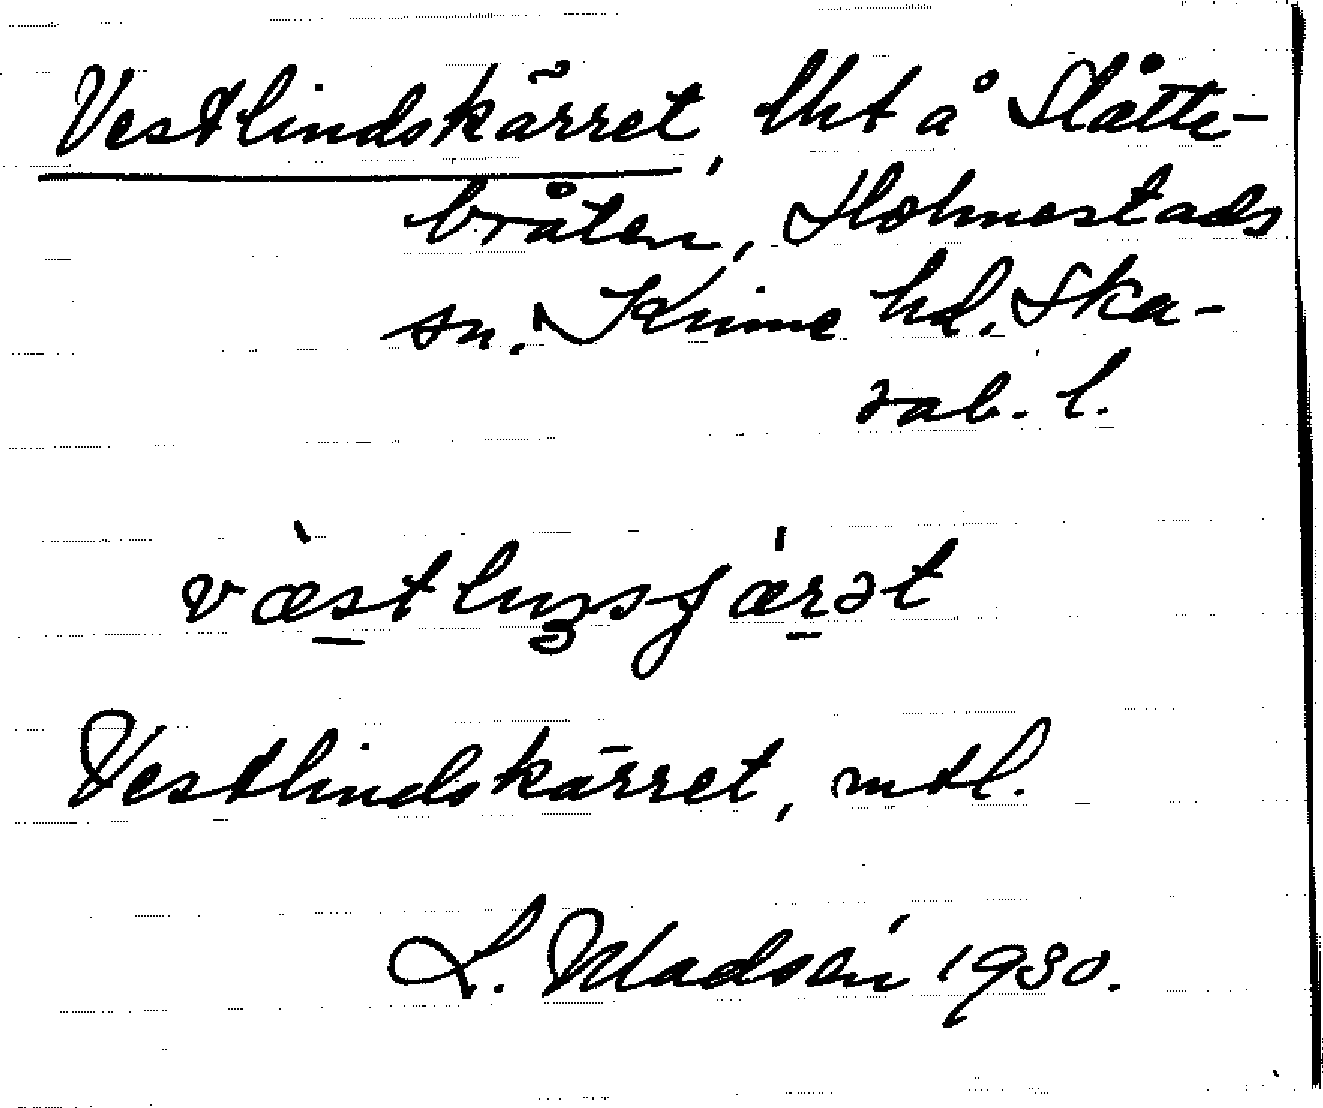 Vestlindskärret, lht å Slåtte-
bråten, Holmestads
sn. Kinne hd. Ska-
rab. l.
væstlinsjærət
Vestlindskärret, mtl.
L. Madsén 1930.